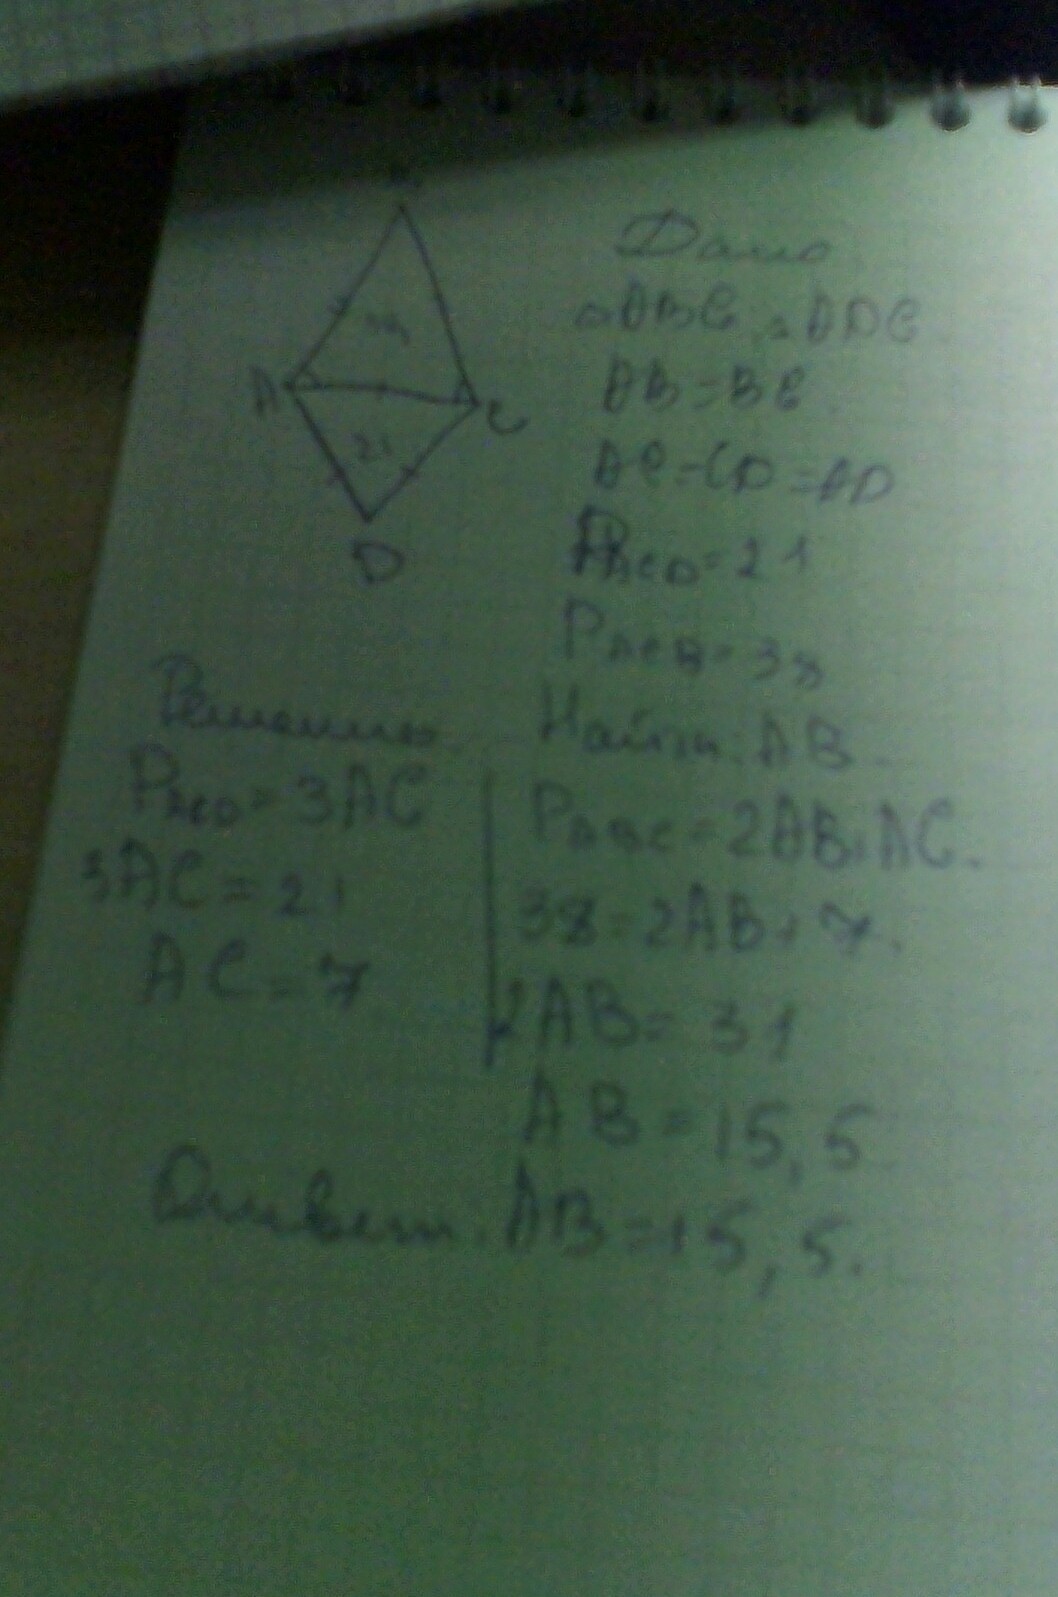 A
C
21
D
Дано
△ABC, △ADC
AB=BC
AC=CD=AD
PACD=21
PACB=38
Найти: AB
Решение
PACD=3AC
3AC=21
AC=7
PABC=2AB+AC.
38=2AB+7.
2AB=31
AB=15,5
Ответ: AB=15,5.